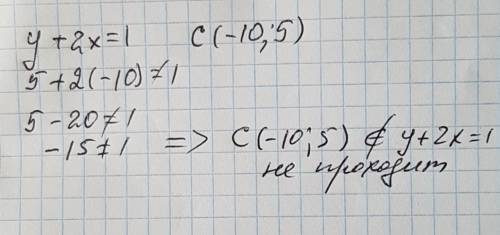 y + 2x = 1    C(-10; 5)
5 + 2(-10) ≠ 1
5 - 20 ≠ 1
-15 ≠ 1 => C(-10; 5) ∉ y + 2x = 1
не проходит